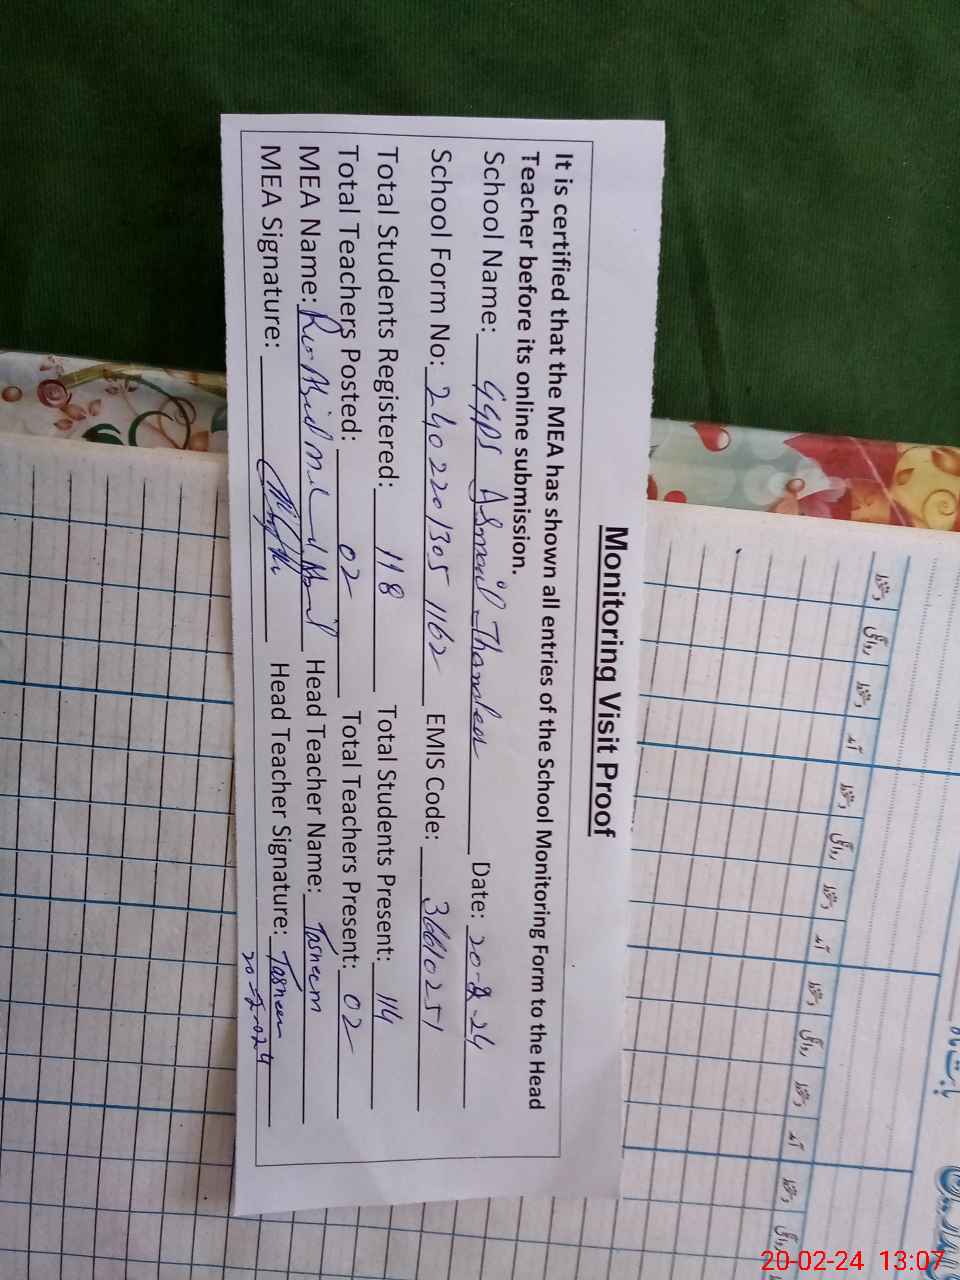 Monitoring Visit Proof
It is certified that the MEA has shown all entries of the School Monitoring Form to the Head
Teacher before its online submission.
School Name: GGPS Ismail Thandea Date: 20-2-24
School Form No: 2402201305 1162 EMIS Code: 36610251
Total Students Registered: 118 Total Students Present: 114
Total Teachers Posted: 02 Total Teachers Present: 02
MEA Name: Head Teacher Name: Tasneem
MEA Signature: Head Teacher Signature: Tasneem
20-2-2024
دستخط روانگی دستخط آمد دستخط روانگی دستخط آمد دستخط روانگی دستخط آمد دستخط روانگی
20-02-24 13:07